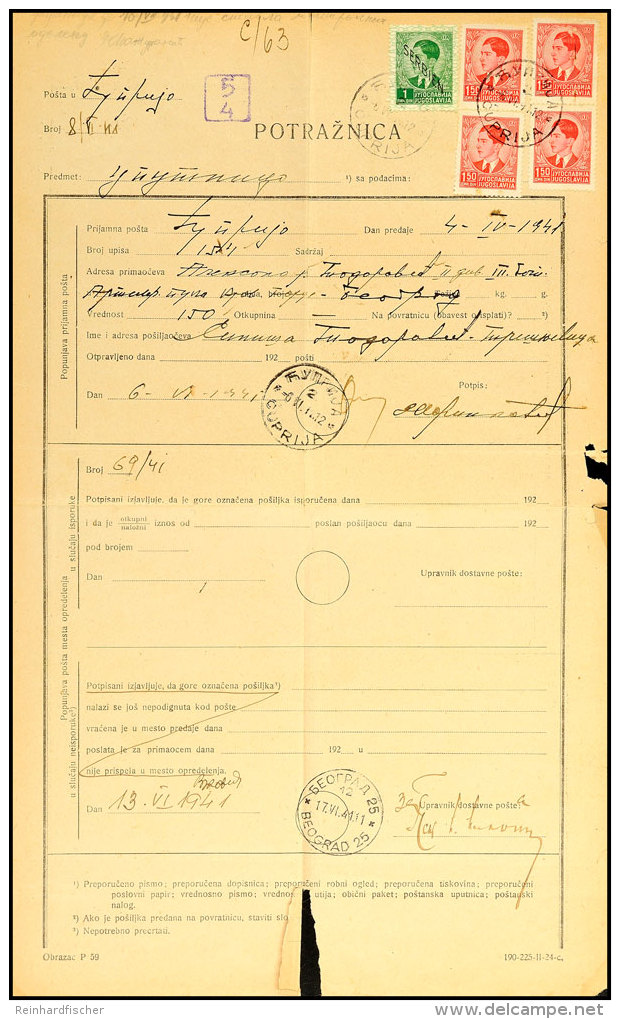 C/63
Pošta u Ћуприја
5
4
Broj 8/VI 41
POTRAŽNICA
SERBIEN
1
ЈУГОСЛАВИЈА
JUGOSLAVIJA
1.50
ЈУГОСЛАВИЈА
JUGOSLAVIJA
1.50
ЈУГОСЛАВИЈА
JUGOSLAVIJA
1.50
ЈУГОСЛАВИЈА
JUGOSLAVIJA
1.50
ЈУГОСЛАВИЈА
JUGOSLAVIJA
ĆUPRIJA
ЋУПРИЈА
ĆUPRIJA
Predmet: упутница ¹) sa podacima:
Popunjava prijamna pošta
Prijamna pošta Ћуприја Dan predaje 4-IV-1941
Broj upisa 154 Sadržaj
Adresa primaočeva Тодоровић II див III
Београд kg. g.
Vrednost 150 Otkupnina Na povratnicu (obavest o isplati)? ²)
Ime i adresa pošiljaočeva Синиша Тодоровић
Otpravljeno dana 192 pošti
Dan 6-VI-1941 Potpis:
ЋУПРИЈА
2
ĆUPRIJA
Popunjava pošta mesta opredelenja
u slučaju isporuke
Broj 69/41
Potpisani izjavljuje, da je gore označena pošiljka isporučena dana 192
i da je otkupni/naložni iznos od poslan pošiljaocu dana 192
pod brojem
Dan Upravnik dostavne pošte:
u slučaju neisporuke³)
Potpisani izjavljuje, da gore označena pošiljka³)
nalazi se još nepodignuta kod pošte
vraćena je u mesto predaje dana
poslata je za primaocem dana 192 u
nije prispela u mesto opredelenja.
Dan 13.VI 1941 Upravnik dostavne pošte
БЕОГРАД 25
12
17.VI.41.11
BEOGRAD 25
¹) Preporučeno pismo; preporučena dopisnica; preporučeni robni ogled; preporučena tiskovina; preporučeni
poslovni papir; vrednosno pismo; vredno utija; obični paket; poštanska uputnica; poštanski
nalog.
²) Ako je pošiljka predana na povratnicu, staviti slo
³) Nepotrebno precrtati.
Obrazac P 59 190-225-II-24-c.
Reinhardfischer
© delcampe.net